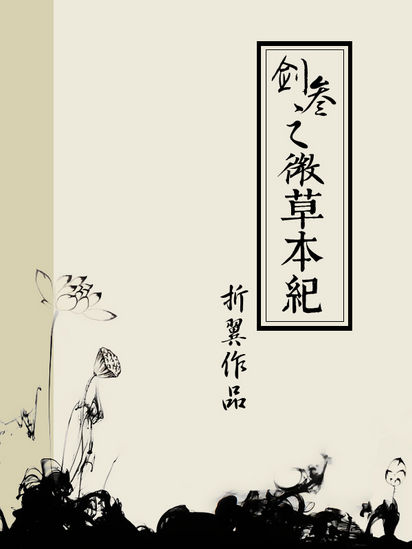 剑叁之微草本紀
折翼作品